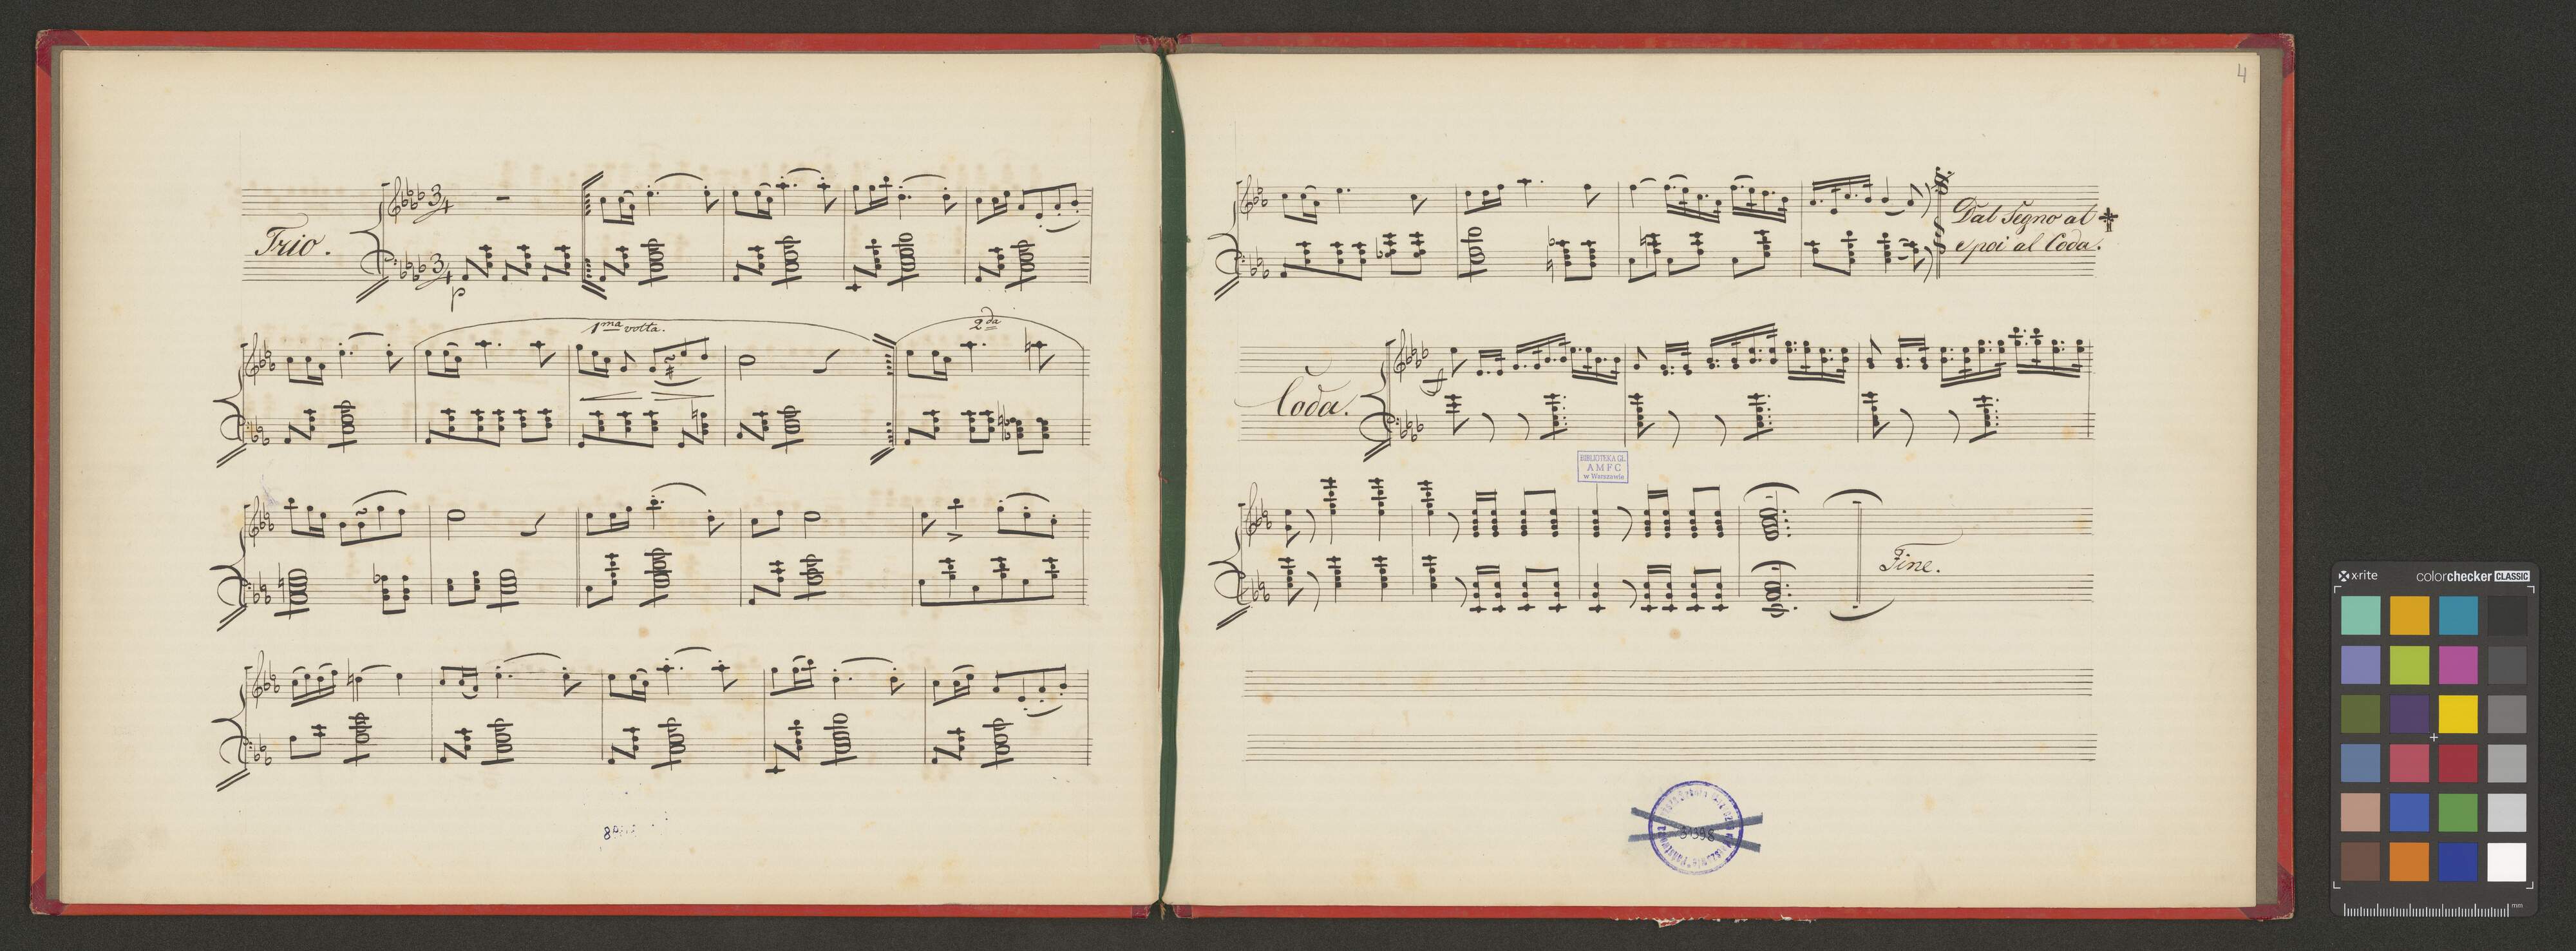 Trio.
p
1ma volta.
2da
4
Dal Segno al
e poi al Coda.
Coda.
f
BIBLIOTEKA GŁ.
AMFC
w Warszawie
Fine.
x-rite
colorchecker CLASSIC
mm